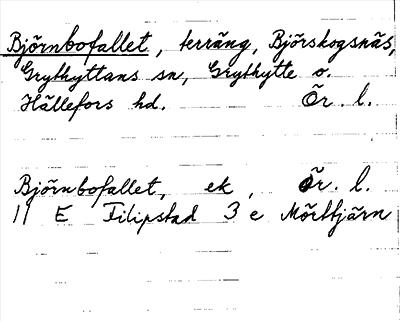 Björnbofallet, terräng, Björskogsnäs,
Grythyttans sn, Grythytte o.
Hällefors hd. Ör. l.
Björnbofallet, ek, Ör. l.
11 E Filipstad 3 e Mörttjärn